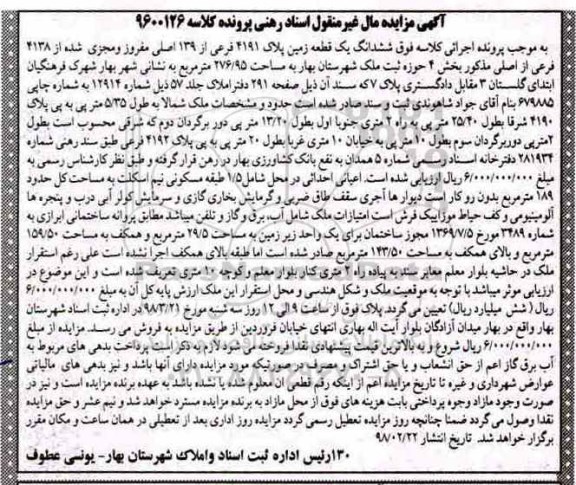 آگهی مزایده مال غیرمنقول اسناد رهنی پرونده کلاسه ۹۶۰۰۱۲۶
به موجب پرونده اجرائی کلاسه فوق ششدانگ یک قطعه زمین پلاک ۴۱۹۱ فرعی از ۱۳۹ اصلی مفروز ومجزی شده از ۴۱۳۸
فرعی از اصلی مذکور بخش ۴ حوزه ثبت ملک شهرستان بهار به مساحت ۲۷۶/۹۵ مترمربع به نشانی شهر بهار شهرک فرهنگیان
ابتدای گلستان ۳ مقابل دادگستری پلاک ۷ که سند آن ذیل صفحه ۲۹۱ دفتراملاک جلد ۵۷ ذیل شماره ۱۲۹۱۴ به شماره چاپی
۶۷۹۸۸۵ بنام آقای جواد شاهوندی ثبت و سند صادر شده است حدود و مشخصات ملک شمالا به طول ۵/۳۵ متر پی به پی پلاک
۴۱۹۰ شرقا بطول ۲۵/۴۰ متر پی به راه ۲ متری جنوبا اول بطول ۱۳/۲۰ متر پی دور برگردان دوم که شرقی محسوب است بطول
۲متر‌پی دوربرگردان سوم بطول ۱۰ متر پی به خیابان ۱۰ متری غربا بطول ۲۰ متر پی به پی پلاک ۴۱۹۲ فرعی طبق سند رهنی شماره
۲۸۱۹۳۴ دفترخانه اسناد رسمی شماره ۵ همدان به نفع بانک کشاورزی بهار در رهن قرار گرفته و طبق نظر کارشناس رسمی به
مبلغ ۶/۰۰۰/۰۰۰/۰۰۰ ریال ارزیابی شده است. اعیانی احداثی در محل شامل ۱/۵ طبقه مسکونی نیم اسکلت به مساحت کل حدود
۱۸۹ مترمربع بدون رو کار است دیوار ها آجری سقف طاق ضربی و گرمایش بخاری گازی و سرمایش کولر آبی درب و پنجره ها
آلومینیومی و کف حیاط موزاییک فرش است امتیازات ملک شامل آب، برق و گاز و تلفن میباشد مطابق پروانه ساختمانی ابرازی به
شماره ۳۴۸۹ مورخ ۱۳۶۹/۷/۵ مجوز ساختمان برای یک واحد زیر زمین به مساحت ۲۹/۵ مترمربع و همکف به مساحت ۱۵۹/۵۰
مترمربع و بالای همکف به مساحت ۱۴۳/۵۰ مترمربع صادر شده است اما طبقه بالای همکف اجرا نشده است علی رغم استقرار
ملک در حاشیه بلوار معلم معابر سند به پیاده راه ۲ متری کنار بلوار معلم و کوچه ۱۰ متری تعریف شده است و این موضوع در
ارزیابی موثر میباشد با توجه به موقعیت ملک و شکل هندسی و محل استقرار این ملک ارزش پایه کل آن به مبلغ ۶/۰۰۰/۰۰۰/۰۰۰
ریال ( شش میلیارد ریال) تعیین می گردد پلاک فوق از ساعت ۹ الی ۱۲ روز سه شنبه مورخ ۹۸/۳/۲۱ در اداره ثبت اسناد شهرستان
بهار واقع در بهار میدان آزادگان بلوار آیت اله بهاری انتهای خیابان فروردین از طریق مزایده به فروش می رسد. مزایده از مبلغ
۶/۰۰۰/۰۰۰/۰۰۰ ریال شروع و به بالاترین قیمت پیشنهادی نقدا فروخته می شود لازم به ذکر است پرداخت بدهی های مربوط به
آب برق گاز اعم از حق انشعاب و یا حق اشتراک و مصرف در صورتیکه مورد مزایده دارای آنها باشد و نیز بدهی های مالیاتی
عوارض شهرداری و غیره تا تاریخ مزایده اعم از اینکه رقم قطعی آن معلوم شده یا نشده باشد به عهده برنده مزایده است و نیز در
صورت وجود مازاد وجوه پرداختی بابت هزینه های فوق از محل مازاد به برنده مزایده مسترد خواهد شد و نیم عشر و حق مزایده
نقدا وصول می گردد ضمنا چنانچه روز مزایده تعطیل رسمی گردد مزایده روز اداری بعد از تعطیلی در همان ساعت و مکان مقرر
برگزار خواهد شد. تاریخ انتشار ۹۸/۰۲/۲۲
۱۳۰رئیس اداره ثبت اسناد واملاک شهرستان بهار- یونسی عطوف